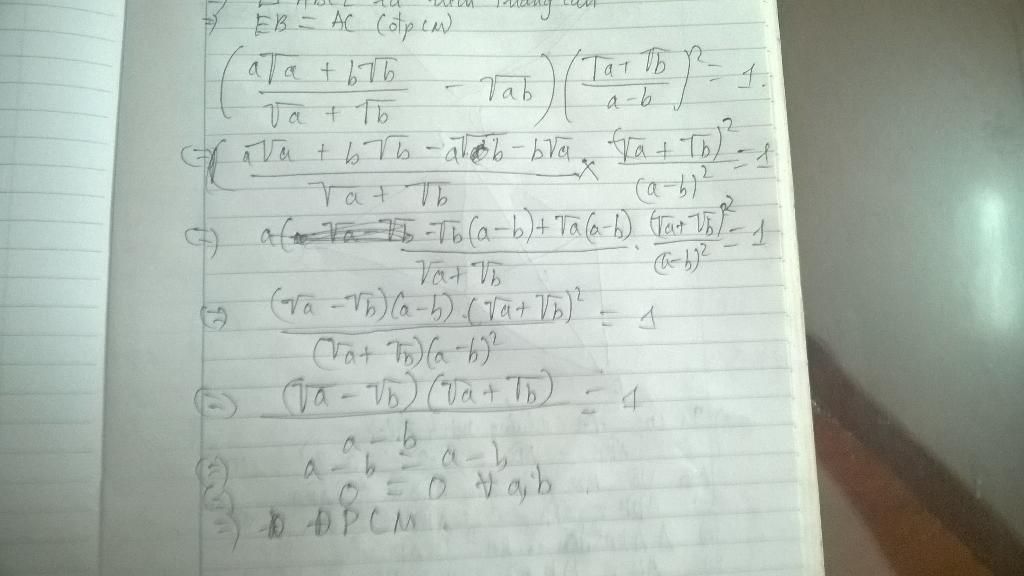 => EB = AC (đpcm)
(a√a + b√b / √a + √b - √ab) (√a + √b / a-b)² = 1.
(=) (a√a + b√b - a√b - b√a / √a + √b × (√a + √b)² / (a-b)² = 1
(=) a( -√b(a-b) + √a(a-b) / √a + √b . (√a + √b)² / (a-b)² = 1
(=) (√a - √b)(a-b).(√a + √b)² / (√a + √b)(a-b)² = 1
(=) (√a - √b)(√a + √b) / a - b = 1
(=) a - b = a - b
(=) 0 = 0 ∀ a,b
=) ĐPCM.